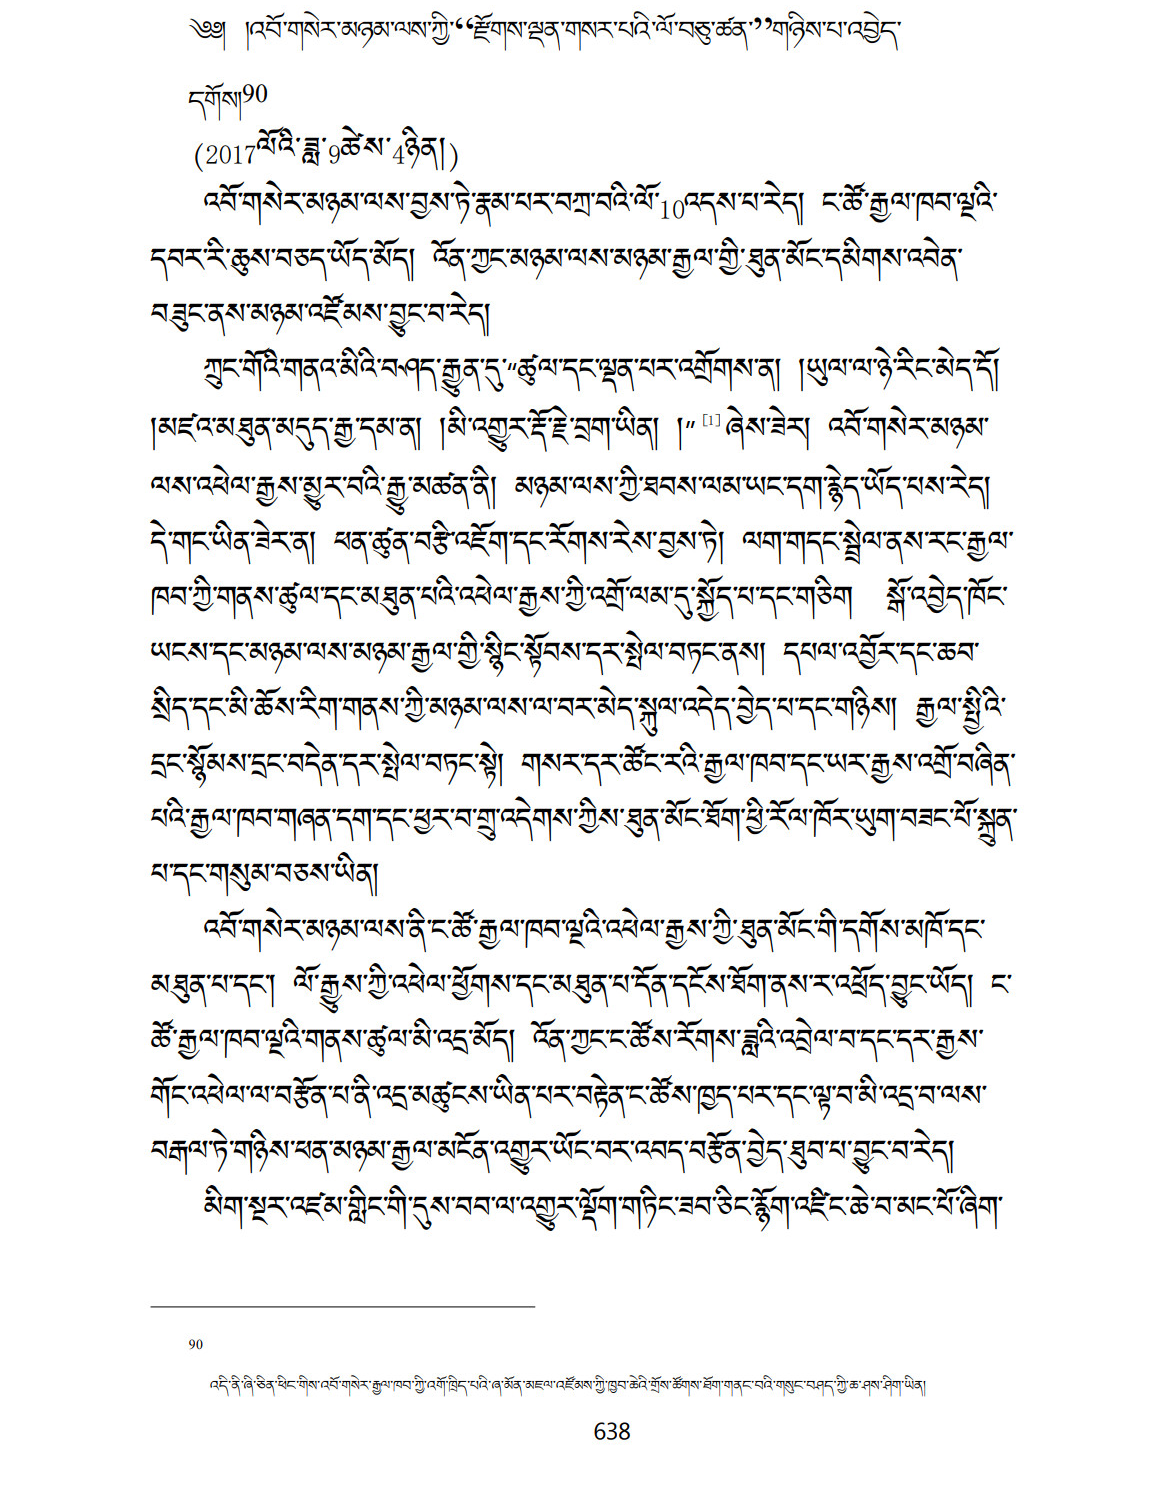 ༄༅།  །འབོ་གསེར་མཉམ་ལས་ཀྱི་“རྫོགས་ལྡན་གསར་པའི་ལོ་བཅུ་ཚན་”གཉིས་པ་འབྱེད་
དགོས།90
(2017ལོའི་ཟླ་9ཚེས་4ཉིན།)
འབོ་གསེར་མཉམ་ལས་བྱས་ཏེ་རྣམ་པར་བཀྲ་བའི་ལོ་10འདས་པ་རེད།  ང་ཚོ་རྒྱལ་ཁབ་ལྔའི་
དབར་རི་ཆུས་བཅད་ཡོད་མོད།  འོན་ཀྱང་མཉམ་ལས་མཉམ་རྒྱལ་གྱི་ཐུན་མོང་དམིགས་འབེན་
བཟུང་ནས་མཉམ་འཛོམས་བྱུང་བ་རེད།
ཀྲུང་གོའི་གནའ་མིའི་བཤད་རྒྱུན་དུ་“ཚུལ་དང་ལྡན་པར་འགྲོགས་ན།  །ཡུལ་ལ་ཉེ་རིང་མེད་དོ།
།མཛའ་མཐུན་མདུད་རྒྱ་དམ་ན།  །མི་འགྱུར་རྡོ་རྗེ་བྲག་ཡིན།  །”[1]ཞེས་ཟེར།  འབོ་གསེར་མཉམ་
ལས་འཕེལ་རྒྱས་མྱུར་བའི་རྒྱུ་མཚན་ནི།  མཉམ་ལས་ཀྱི་ཐབས་ལམ་ཡང་དག་རྙེད་ཡོད་པས་རེད།
དེ་གང་ཡིན་ཟེར་ན།  ཕན་ཚུན་བརྩི་འཇོག་དང་རོགས་རེས་བྱས་ཏེ།  ལག་གདང་སྦྲེལ་ནས་རང་རྒྱལ་
ཁབ་ཀྱི་གནས་ཚུལ་དང་མཐུན་པའི་འཕེལ་རྒྱས་ཀྱི་འགྲོ་ལམ་དུ་སྐྱོད་པ་དང་གཅིག   སྒོ་འབྱེད་ཁོང་
ཡངས་དང་མཉམ་ལས་མཉམ་རྒྱལ་གྱི་སྙིང་སྟོབས་དར་སྤེལ་བཏང་ནས།  དཔལ་འབྱོར་དང་ཆབ་
སྲིད་དང་མི་ཆོས་རིག་གནས་ཀྱི་མཉམ་ལས་ལ་བར་མེད་སྐུལ་འདེད་བྱེད་པ་དང་གཉིས།  རྒྱལ་སྤྱིའི་
དྲང་སྙོམས་དྲང་བདེན་དར་སྤེལ་བཏང་སྟེ།  གསར་དར་ཚོང་རའི་རྒྱལ་ཁབ་དང་ཡར་རྒྱས་འགྲོ་བཞིན་
པའི་རྒྱལ་ཁབ་གཞན་དག་དང་ཕྱར་བ་གྲུ་འདེགས་ཀྱིས་ཐུན་མོང་ཐོག་ཕྱི་རོལ་ཁོར་ཡུག་བཟང་པོ་སྐྲུན་
པ་དང་གསུམ་བཅས་ཡིན།
འབོ་གསེར་མཉམ་ལས་ནི་ང་ཚོ་རྒྱལ་ཁབ་ལྔའི་འཕེལ་རྒྱས་ཀྱི་ཐུན་མོང་གི་དགོས་མཁོ་དང་
མཐུན་པ་དང་།  ལོ་རྒྱུས་ཀྱི་འཕེལ་ཕྱོགས་དང་མཐུན་པ་དོན་དངོས་ཐོག་ནས་ར་འཕྲོད་བྱུང་ཡོད།  ང་
ཚོ་རྒྱལ་ཁབ་ལྔའི་གནས་ཚུལ་མི་འདྲ་མོད།  འོན་ཀྱང་ང་ཚོས་རོགས་ཟླའི་འབྲེལ་བ་དང་དར་རྒྱས་
གོང་འཕེལ་ལ་བརྩོན་པ་ནི་འདྲ་མཚུངས་ཡིན་པར་བརྟེན་ང་ཚོས་ཁྱད་པར་དང་ལྟ་བ་མི་འདྲ་བ་ལས་
བརྒལ་ཏེ་གཉིས་ཕན་མཉམ་རྒྱལ་མངོན་འགྱུར་ཡོང་བར་འབད་བརྩོན་བྱེད་ཐུབ་པ་བྱུང་བ་རེད།
མིག་སྔར་འཛམ་གླིང་གི་དུས་བབ་ལ་འགྱུར་ལྡོག་གཏིང་ཟབ་ཅིང་རྙོག་འཛིང་ཆེ་བ་མང་པོ་ཞིག་
90
འདི་ནི་ཞི་ཅིན་ཕིང་གིས་འབོ་གསེར་རྒྱལ་ཁབ་ཀྱི་འགོ་ཁྲིད་པའི་ཞ་མོན་མཇལ་འཛོམས་ཀྱི་ཁྱབ་ཆེའི་གྲོས་ཚོགས་ཐོག་གནང་བའི་གསུང་བཤད་ཀྱི་ཆ་ཤས་ཤིག་ཡིན།
638